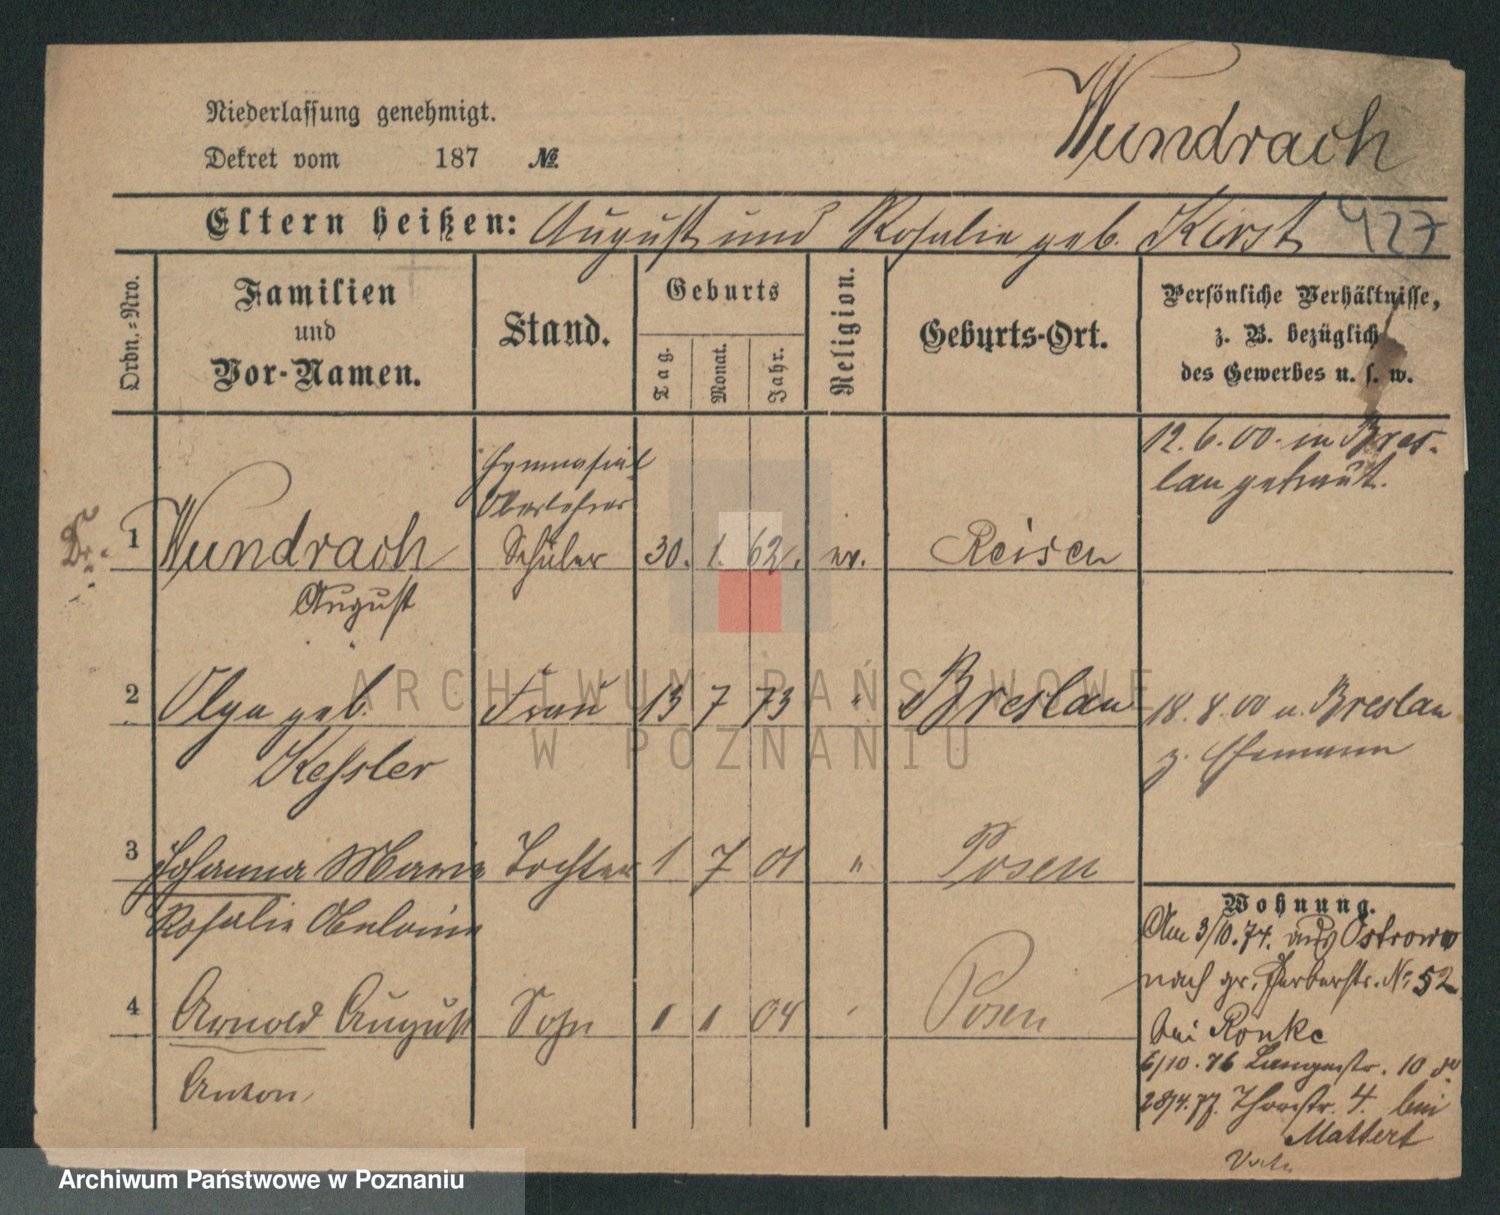 Niederlassung genehmigt.
Dekret vom 187 №
Wundrach
427
Eltern heißen: August und Rosalie geb. Kirst
Ordn.-Nro.
Familien
und
Vor-Namen.
Stand.
Geburts
Tag. Monat. Jahr.
Religion.
Geburts-Ort.
Persönliche Verhältnisse,
z. B. bezüglich
des Gewerbes u. s. w.
12. 6. 00. in Bres-
lau getraut.
Gymnasial
Oberlehrer
Dr. 1 Wundrach Schüler 30. 1. 62. ev. Reisen
August
2 Olga geb. Frau 13 7 73 " Breslau 18. 8. 00 v. Breslau
Kessler z. Ehemann
3 Johanna Marie Tochter 1 7 01 " Posen
Rosalie
4 Arnold August Sohn 1 1 04 Posen
Anton
Wohnung.
Am 3/10. 74. aus Ostrowo
nach gr. Gerberstr. Nr. 52
bei Ronke
6/10. 76 Langestr. 10
28/4. 77. Thorstr. 4. bei
Mattert
ARCHIWUM PAŃSTWOWE
W POZNANIU
Archiwum Państwowe w Poznaniu